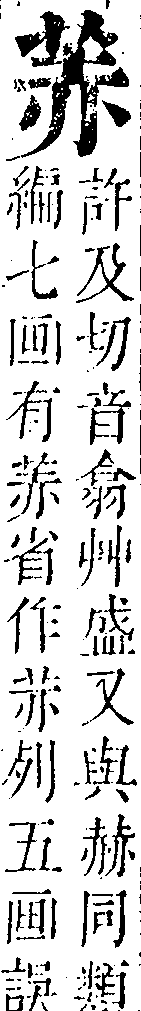 許及切音翕艸盛又與赫同類
編七画有省作列五画誤